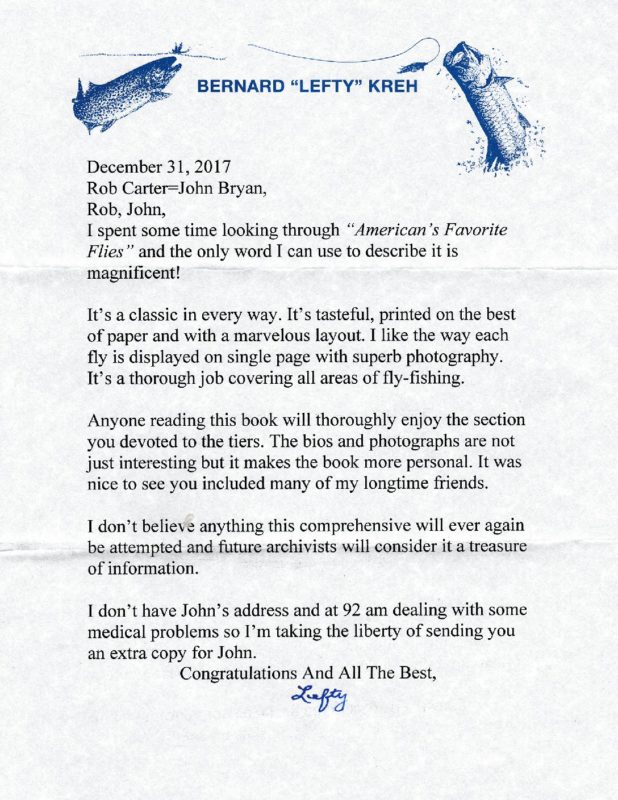 BERNARD “LEFTY” KREH
December 31, 2017
Rob Carter=John Bryan,
Rob, John,
I spent some time looking through “American’s Favorite
Flies” and the only word I can use to describe it is
magnificent!
It’s a classic in every way. It’s tasteful, printed on the best
of paper and with a marvelous layout. I like the way each
fly is displayed on single page with superb photography.
It’s a thorough job covering all areas of fly-fishing.
Anyone reading this book will thoroughly enjoy the section
you devoted to the tiers. The bios and photographs are not
just interesting but it makes the book more personal. It was
nice to see you included many of my longtime friends.
I don’t believe anything this comprehensive will ever again
be attempted and future archivists will consider it a treasure
of information.
I don’t have John’s address and at 92 am dealing with some
medical problems so I’m taking the liberty of sending you
an extra copy for John.
Congratulations And All The Best,
Lefty